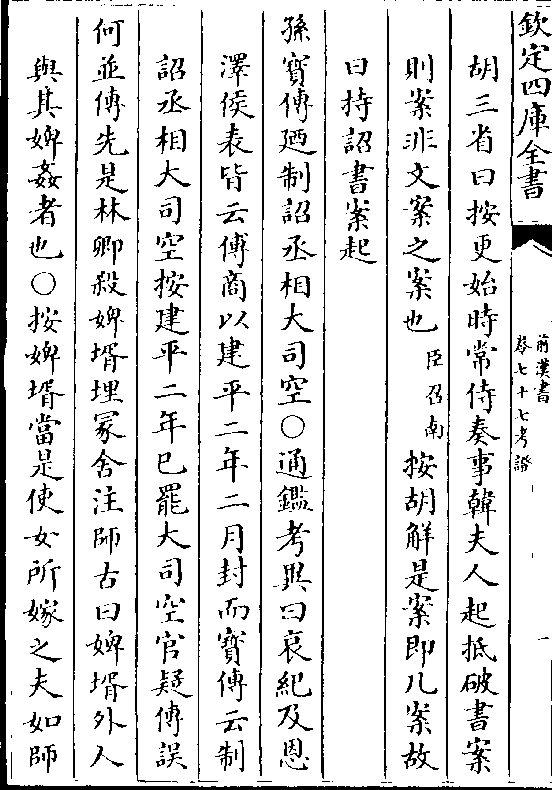 欽定四庫全書
前漢書
卷七十七考證
一
胡三省曰按更始時常侍奏事韓夫人起抵破書案
則案非文案之案也臣召南按胡解是案即几案故
曰持詔書案起
孫寶傳廼制詔丞相大司空○通鑑考異曰哀紀及恩
澤侯表皆云傅商以建平二年二月封而寶傳云制
詔丞相大司空按建平二年巳罷大司空官疑傳誤
何並傳先是林卿殺婢壻埋冢舍注師古曰婢壻外人
與其婢姦者也○按婢壻當是使女所嫁之夫如師